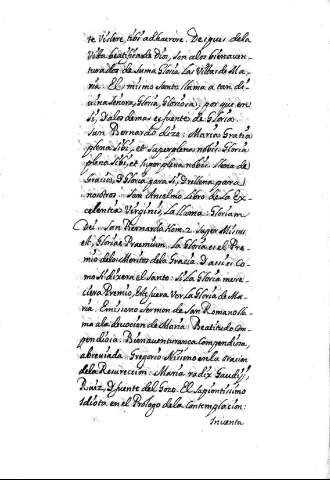 te Videre, tibi adhaerere. Despues de la
Vista beatifica de Dios, son a los bienaven-
turados de suma Gloria las Vistas de Ma-
ria. El mismo Santo llama a tan di-
uina Señora, Gloria, Gloriosa, por que en
si, y a los demas es fuente de Gloria.
San Bernardo dize: Maria Gratia
plena sibi, et superplena nobis: Gloria
plena sibi, et superplena nobis. llena de
Gracia, y Gloria para si, y rellena para
nosotros. San Anselmo libro de la Ex-
celentia Virginis, La llama: Gloriam
Dei. San Bernardo Hom. 2. super Missus
est, Gloriae Praemium. La Gloria es el Pre-
mio de los Meritos de la Gracia. Y assi co-
mo si dixera el Santo: si la Gloria mere-
ciera Premio, este fuera Ver la Gloria de Ma-
ria. El mismo sermon de San Romano lla-
ma a la deuocion de Maria: Beatitudo Com-
pendiosa: Bienauenturanca Compendiosa,
abreviada. Gregorio Niseno en la oracion
de la Resureccion: Maria radix Gaudij,
Raiz, y fuente del Gozo. El sapientissimo
Idiota en el Prologo de la Contemplacion:
Inuenta